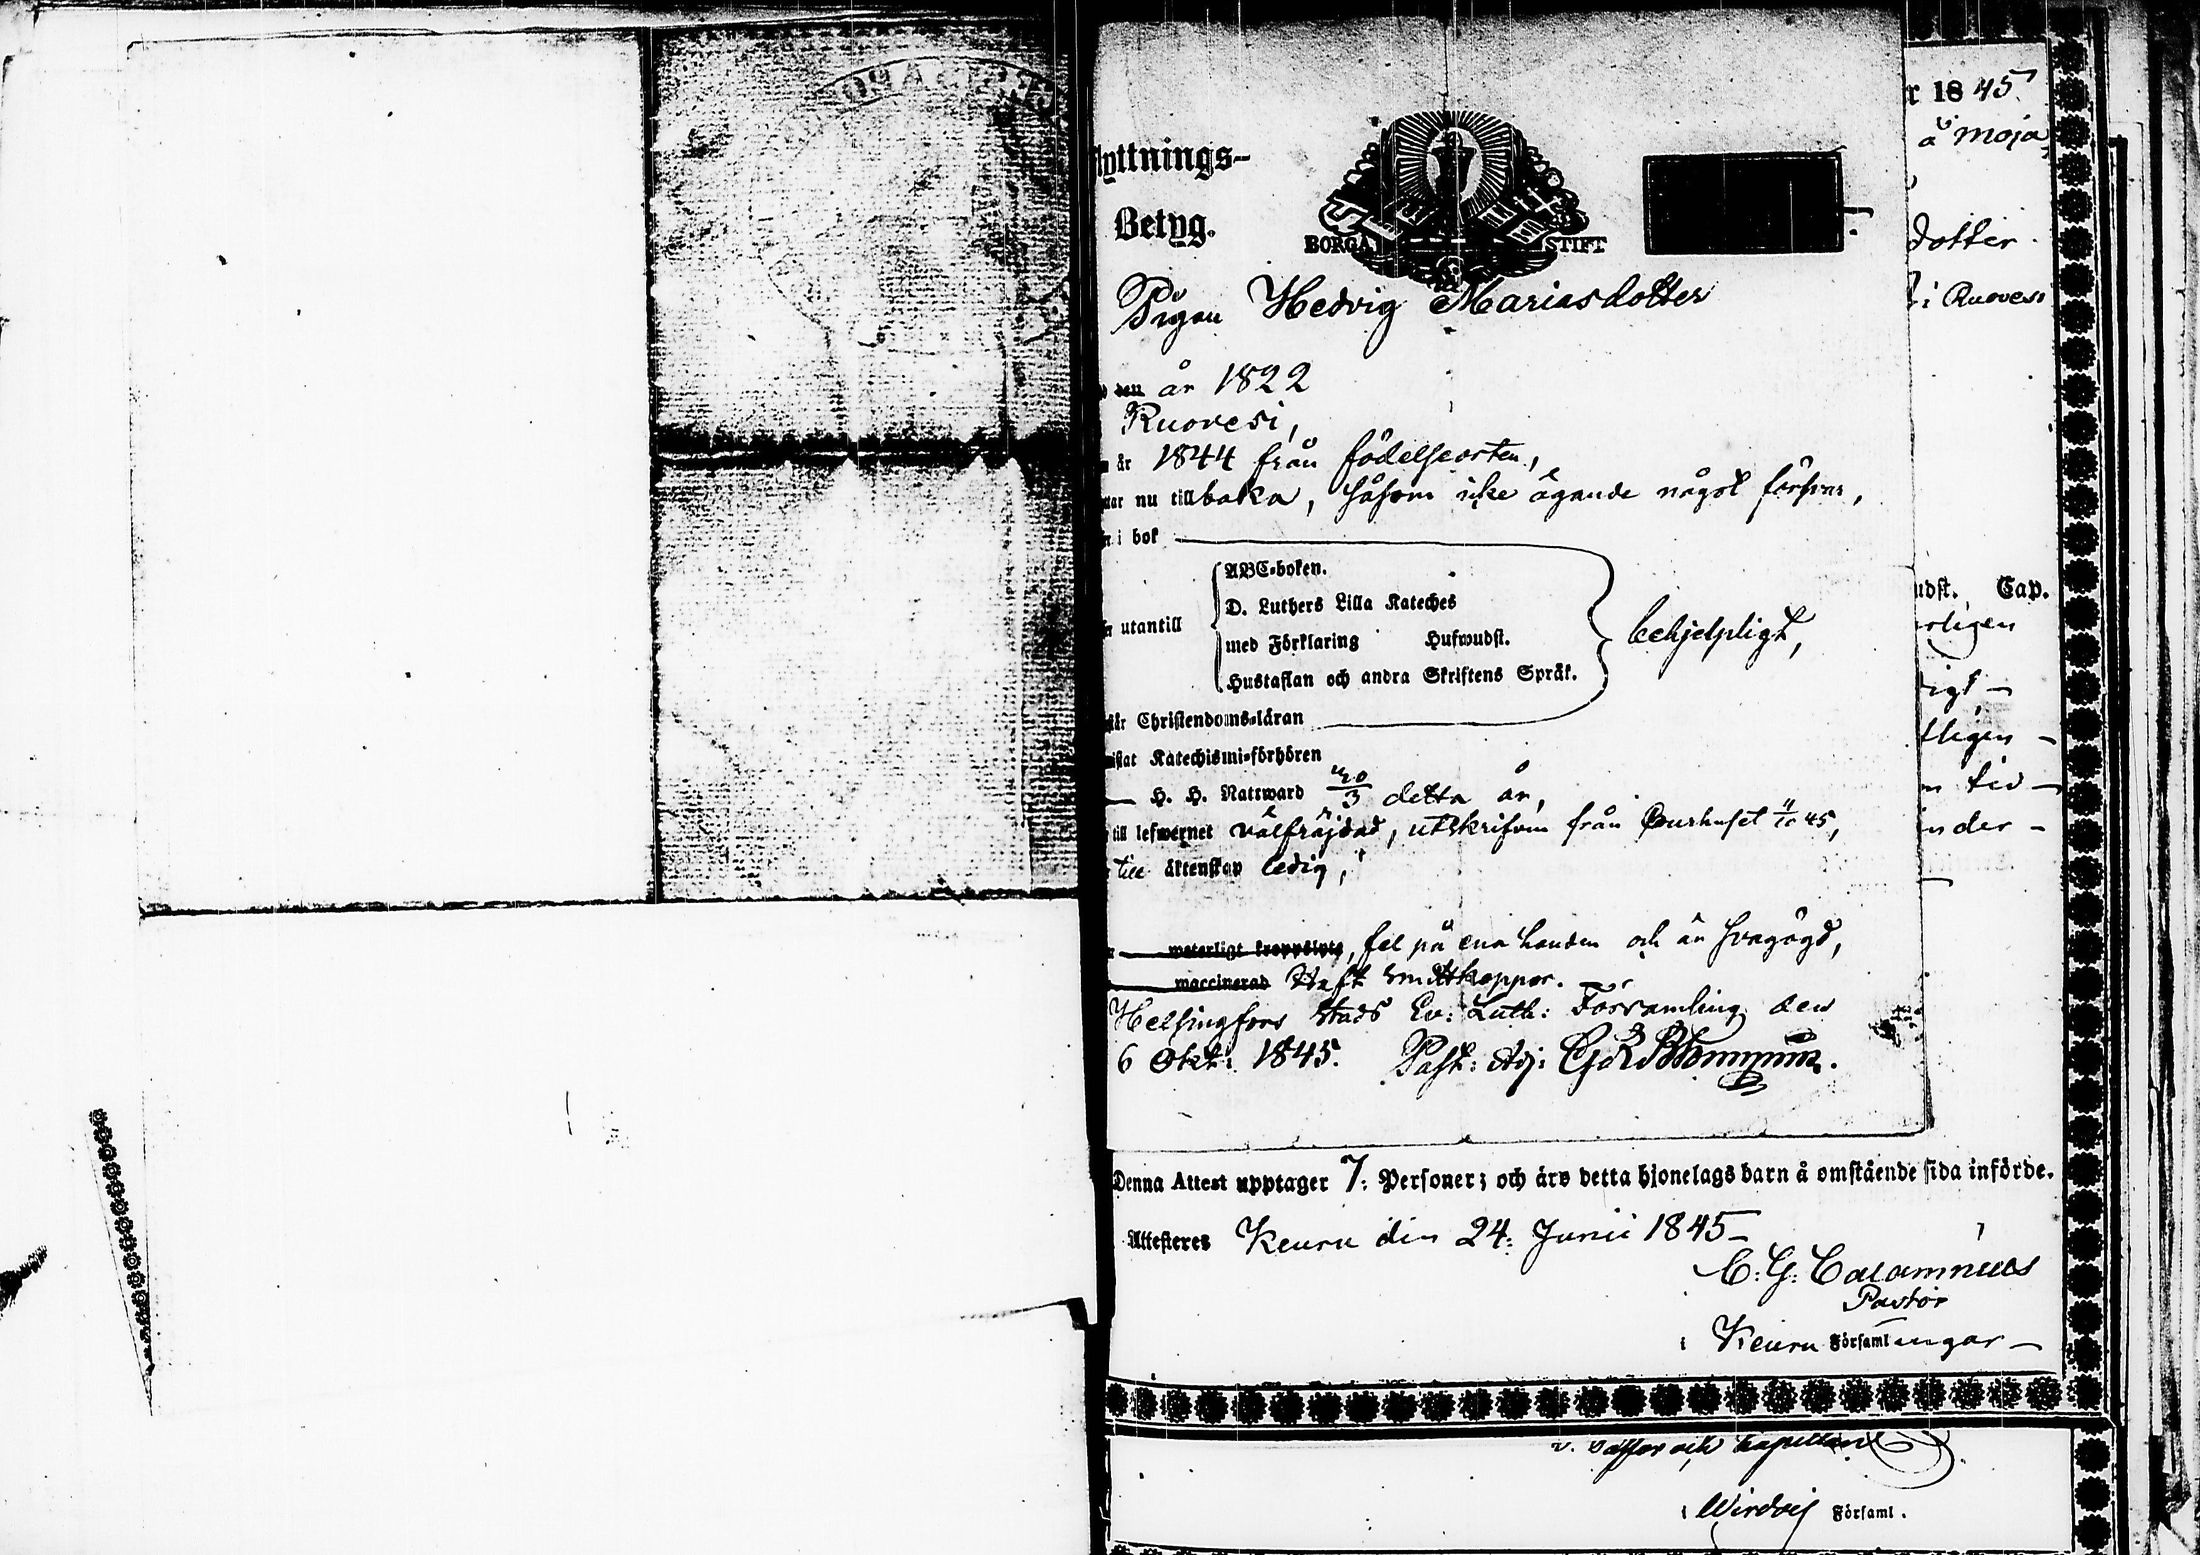 r 1845.
å moja
lyttnings-
Betyg.
BORGÅ STIFT
Pigan Hedvig Mariasdotter
dotter
i Ruovesi
den år 1822
Ruovesi,
år 1844 från födelseorten,
nu tillbaka, såsom icke ägande något försvar,
i bok
ABC-boken.
D. Luthers Lilla Kateches
utantill
med Förklaring Hufwudst.
behjelpligt,
Hustaflan och andra Skriftens Språk.
Christendoms-läran
Katechismi-förhören
H. H. Nattward 30/3 detta år,
till lefwernet välfräjdad, utskrifven från Curhuset 4/10 45,
till äktenskap ledig,
waterligt kroppslyte, fel på ena handen och är svagögd,
waccinerad haft smittkoppor.
Helsingfors stads Ev: Luth: Församling den
6 Okt: 1845. Past: Adj:
udst. Cap.
erligen
tligen -
tid -
nder -
Denna Attest upptager 7: Personer; och äro detta hjonelags barn å omstående sida införde.
Attesteres Keuru den 24: Junii 1845 -
C: G: Calamnius
Pastor
i Keuru Församlingar -
v. Pastor och kapellan
i Wirdois Församl.